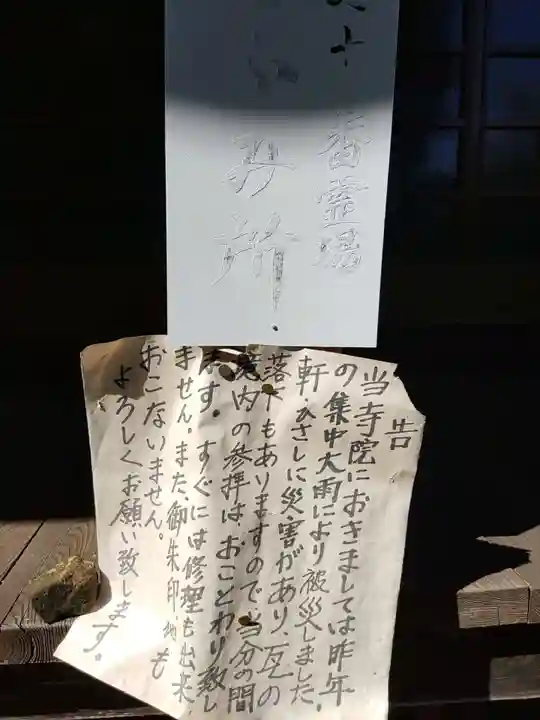 十番霊場
納所
告
当寺院におきましては昨年
の集中大雨により被災しました。
軒・ひさしに災害があり、瓦の
落下もありますので、当分の間
境内の参拝は、おことわり致し
ます。すぐには修理も出来
ません。また、御朱印も
おこないません。
よろしくお願い致します。